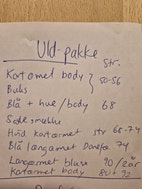 Uld-pakke
Str.
Kortærmet body } 50-56
Buks
Blå + hue/body 68
Savlesmække
Hvid kortærmet str 68-74
Blå langærmet 74
Langærmet bluse 90/2år
Kortærmet body 80+92